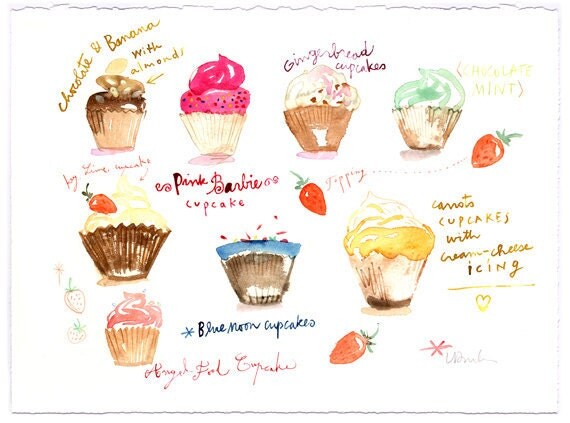 chocolate & Banana
with
almonds
Gingerbread
cupcakes
(CHOCOLATE
MINT)
Pink Barbie
cupcake
Topping
carrots
CUPCAKES
with
cream-cheese
iCING
Blue moon cupcakes
Angel Food Cupcake